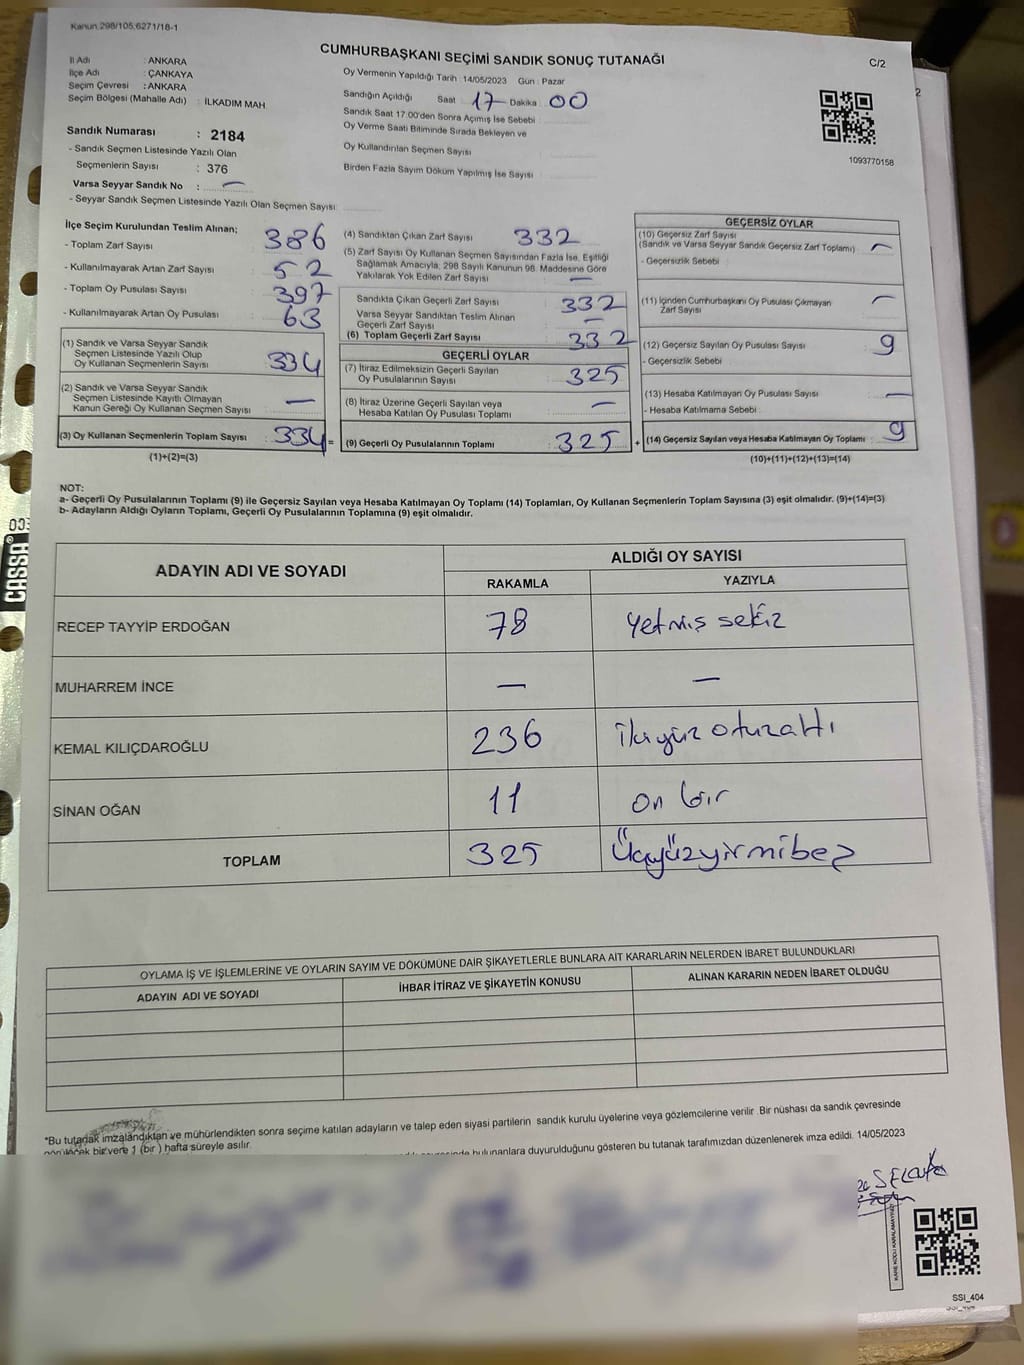 Kanun.298/105,6271/18-1
CUMHURBAŞKANI SEÇİMİ SANDIK SONUÇ TUTANAĞI
C/2
İl Adı : ANKARA
İlçe Adı : ÇANKAYA
Seçim Çevresi : ANKARA
Seçim Bölgesi (Mahalle Adı) : İLKADIM MAH.
Oy Vermenin Yapıldığı Tarih : 14/05/2023 Gün : Pazar
Sandığın Açıldığı Saat : 17 Dakika : 00
Sandık Saat 17.00'den Sonra Açımış İse Sebebi :
Oy Verme Saati Bitiminde Sırada Bekleyen ve
Oy Kullandırılan Seçmen Sayısı
Birden Fazla Sayım Döküm Yapılmış İse Sayısı :
1093770158
2
Sandık Numarası : 2184
- Sandık Seçmen Listesinde Yazılı Olan
Seçmenlerin Sayısı : 376
Varsa Seyyar Sandık No : —
- Seyyar Sandık Seçmen Listesinde Yazılı Olan Seçmen Sayısı:
İlçe Seçim Kurulundan Teslim Alınan;
- Toplam Zarf Sayısı : 386
- Kullanılmayarak Artan Zarf Sayısı : 52
- Toplam Oy Pusulası Sayısı : 397
- Kullanılmayarak Artan Oy Pusulası : 63
(1) Sandık ve Varsa Seyyar Sandık
Seçmen Listesinde Yazılı Olup
Oy Kullanan Seçmenlerin Sayısı : 334
(2) Sandık ve Varsa Seyyar Sandık
Seçmen Listesinde Kayıtlı Olmayan
Kanun Gereği Oy Kullanan Seçmen Sayısı : —
(3) Oy Kullanan Seçmenlerin Toplam Sayısı : 334 =
(1)+(2)=(3)
(4) Sandıktan Çıkan Zarf Sayısı : 332
(5) Zarf Sayısı Oy Kullanan Seçmen Sayısından Fazla İse, Eşitliği
Sağlamak Amacıyla, 298 Sayılı Kanunun 98. Maddesine Göre
Yakılarak Yok Edilen Zarf Sayısı : —
Sandıkta Çıkan Geçerli Zarf Sayısı : 332
Varsa Seyyar Sandıktan Teslim Alınan
Geçerli Zarf Sayısı : —
(6) Toplam Geçerli Zarf Sayısı : 332
GEÇERLİ OYLAR
(7) İtiraz Edilmeksizin Geçerli Sayılan
Oy Pusulalarının Sayısı : 325
(8) İtiraz Üzerine Geçerli Sayılan veya
Hesaba Katılan Oy Pusulası Toplamı : —
(9) Geçerli Oy Pusulalarının Toplamı : 325 +
GEÇERSİZ OYLAR
(10) Geçersiz Zarf Sayısı
(Sandık ve Varsa Seyyar Sandık Geçersiz Zarf Toplamı) : —
- Geçersizlik Sebebi :
(11) İçinden Cumhurbaşkanı Oy Pusulası Çıkmayan
Zarf Sayısı : —
(12) Geçersiz Sayılan Oy Pusulası Sayısı : 9
- Geçersizlik Sebebi :
(13) Hesaba Katılmayan Oy Pusulası Sayısı : —
- Hesaba Katılmama Sebebi :
(14) Geçersiz Sayılan veya Hesaba Katılmayan Oy Toplamı : 9
(10)+(11)+(12)+(13)=(14)
NOT:
a- Geçerli Oy Pusulalarının Toplamı (9) ile Geçersiz Sayılan veya Hesaba Katılmayan Oy Toplamı (14) Toplamları, Oy Kullanan Seçmenlerin Toplam Sayısına (3) eşit olmalıdır. (9)+(14)=(3)
b- Adayların Aldığı Oyların Toplamı, Geçerli Oy Pusulalarının Toplamına (9) eşit olmalıdır.
CASSA®
ADAYIN ADI VE SOYADI
ALDIĞI OY SAYISI
RAKAMLA YAZIYLA
RECEP TAYYİP ERDOĞAN 78 Yetmiş sekiz
MUHARREM İNCE — —
KEMAL KILIÇDAROĞLU 236 İkiyüz otuzaltı
SİNAN OĞAN 11 on bir
TOPLAM 325 Üçyüzyirmibeş
OYLAMA İŞ VE İŞLEMLERİNE VE OYLARIN SAYIM VE DÖKÜMÜNE DAİR ŞİKAYETLERLE BUNLARA AİT KARARLARIN NELERDEN İBARET BULUNDUKLARI
ADAYIN ADI VE SOYADI İHBAR İTİRAZ VE ŞİKAYETİN KONUSU ALINAN KARARIN NEDEN İBARET OLDUĞU
*Bu tutanak imzalandıktan ve mühürlendikten sonra seçime katılan adayların ve talep eden siyasi partilerin sandık kurulu üyelerine veya gözlemcilerine verilir. Bir nüshası da sandık çevresinde
görülecek bir yere 1 (bir) hafta süreyle asılır.
bulunanlara duyurulduğunu gösteren bu tutanak tarafımızdan düzenlenerek imza edildi. 14/05/2023
KARE KODU KARALAMAYINIZ
SSI_404